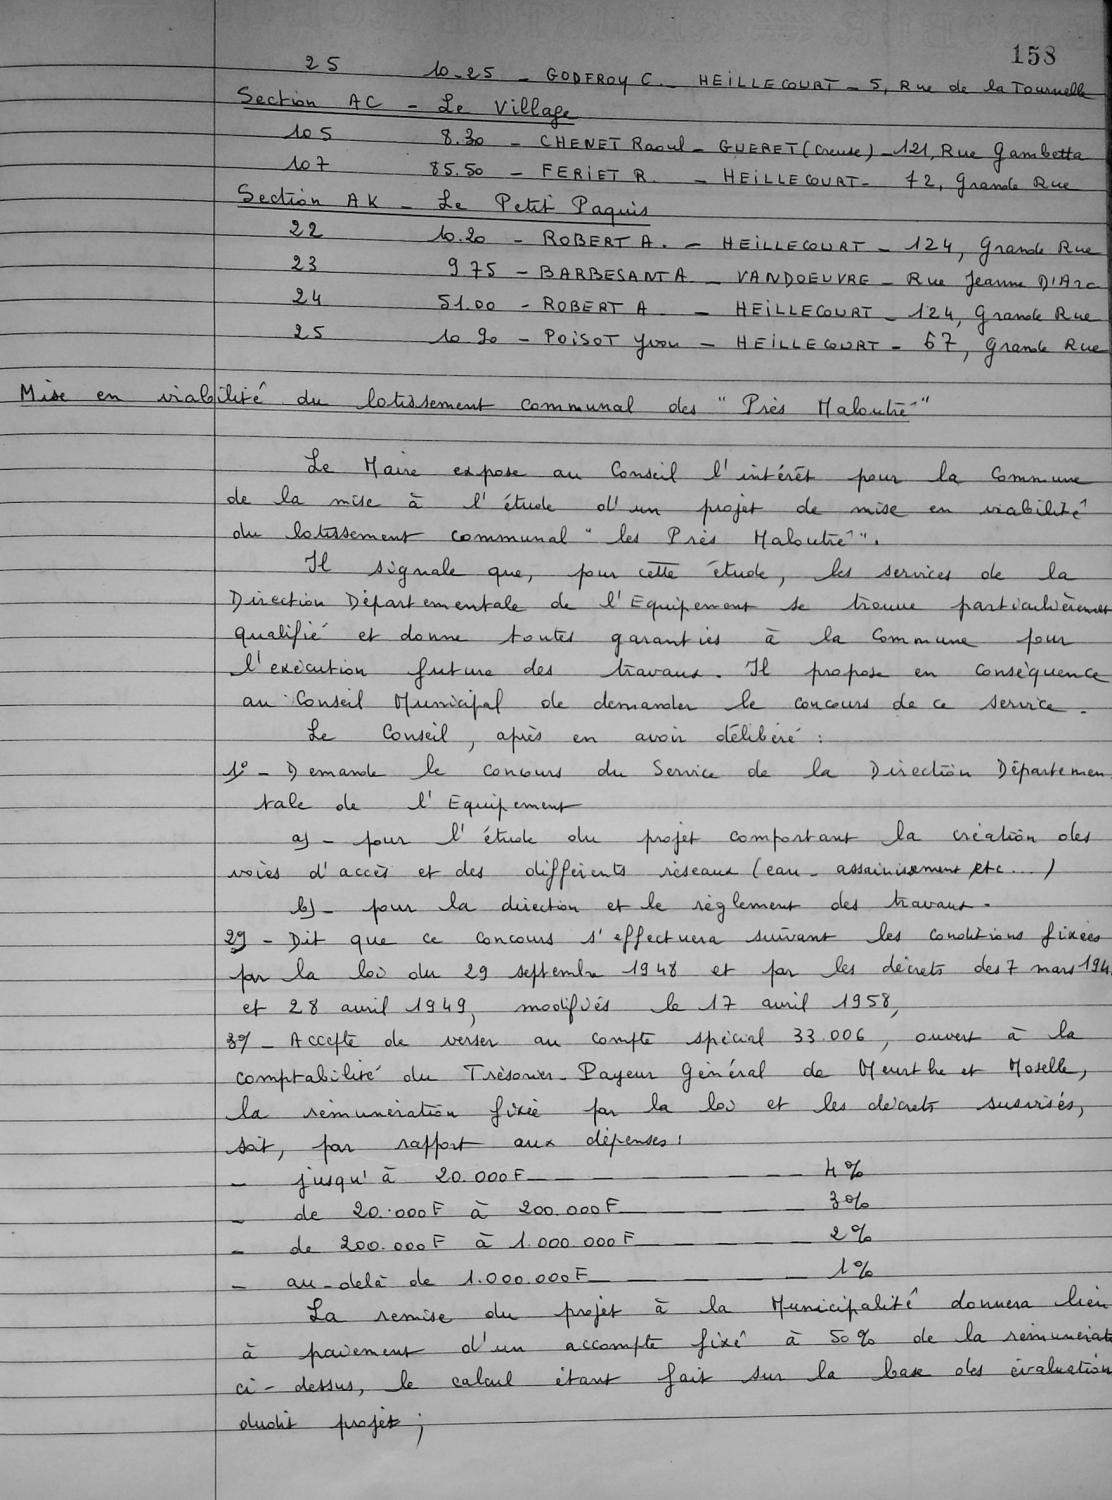 158
25 10.25 - GODEFROY C. - HEILLECOURT - 5, Rue de la Tournelle
Section AC - Le Village
105 8.30 - CHENET Raoul - GUERET (Creuse) - 121, Rue Gambetta
107 85.50 - FERIET R. - HEILLECOURT - 72, Grande Rue
Section AK - Le Petit Paquis
22 10.20 - ROBERT A. - HEILLECOURT - 124, Grande Rue
23 9.75 - BARBESANT A. - VANDOEUVRE - Rue Jeanne D'Arc
24 51.00 - ROBERT A - HEILLECOURT - 124, Grande Rue
25 10.90 - POISOT Yvon - HEILLECOURT - 67, Grande Rue
Mise en viabilité du lotissement communal des "Près Maloutré"
Le Maire expose au Conseil l'intérêt pour la Commune
de la mise à l'étude d'un projet de mise en viabilité
du lotissement communal "les Près Maloutré".
Il signale que, pour cette étude, les services de la
Direction Départementale de l'Equipement se trouve particulièrement
qualifié et donne toutes garanties à la Commune pour
l'exécution future des travaux. Il propose en conséquence
au Conseil Municipal de demander le concours de ce service.
Le Conseil, après en avoir délibéré :
1° - Demande le concours du Service de la Direction Départemen
tale de l'Equipement
a) - pour l'étude du projet comportant la création des
voies d'accès et des différents réseaux (eau - assainissement etc...)
b) - pour la direction et le règlement des travaux.
2° - Dit que ce concours s'effectuera suivant les conditions fixées
par la loi du 29 septembre 1948 et par les décrets des 7 mars 194
et 28 avril 1949, modifiés le 17 avril 1958,
3° - Accepte de verser au compte spécial 33.006, ouvert à la
comptabilité du Trésorier-Payeur Général de Meurthe et Moselle,
la rémunération fixée par la loi et les décrets susvisés,
soit, par rapport aux dépenses :
- jusqu'à 20.000F - - - - - - 4%
- de 20.000F à 200.000F - - - - 3%
- de 200.000F à 1.000.000F - - - - 2%
- au-delà de 1.000.000F - - - - 1%
La remise du projet à la Municipalité donnera lieu
à paiement d'un accompte fixé à 50% de la rémunérat
ci-dessus, le calcul étant fait sur la base des évaluation
dudit projet ;